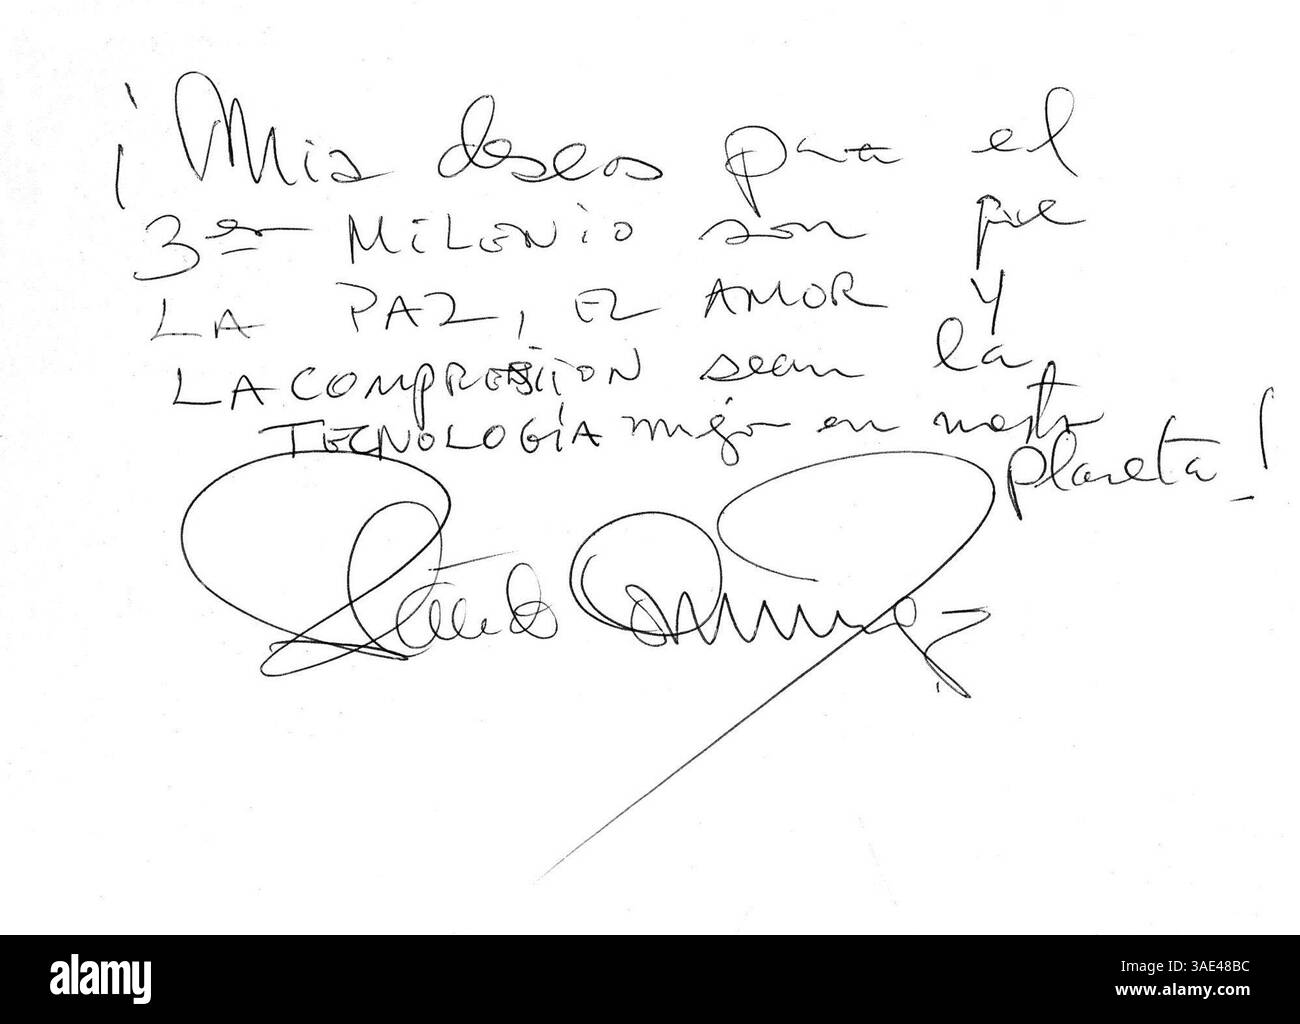 ¡Mis deseos para el
3er MiLENiO son que
LA PAZ, EL AMOR Y
LA COMPRESIÓN sean la
TECNOLOGÍA mejor en nuestro
planeta!
alamy
Image ID: 3AE48BC
www.alamy.com